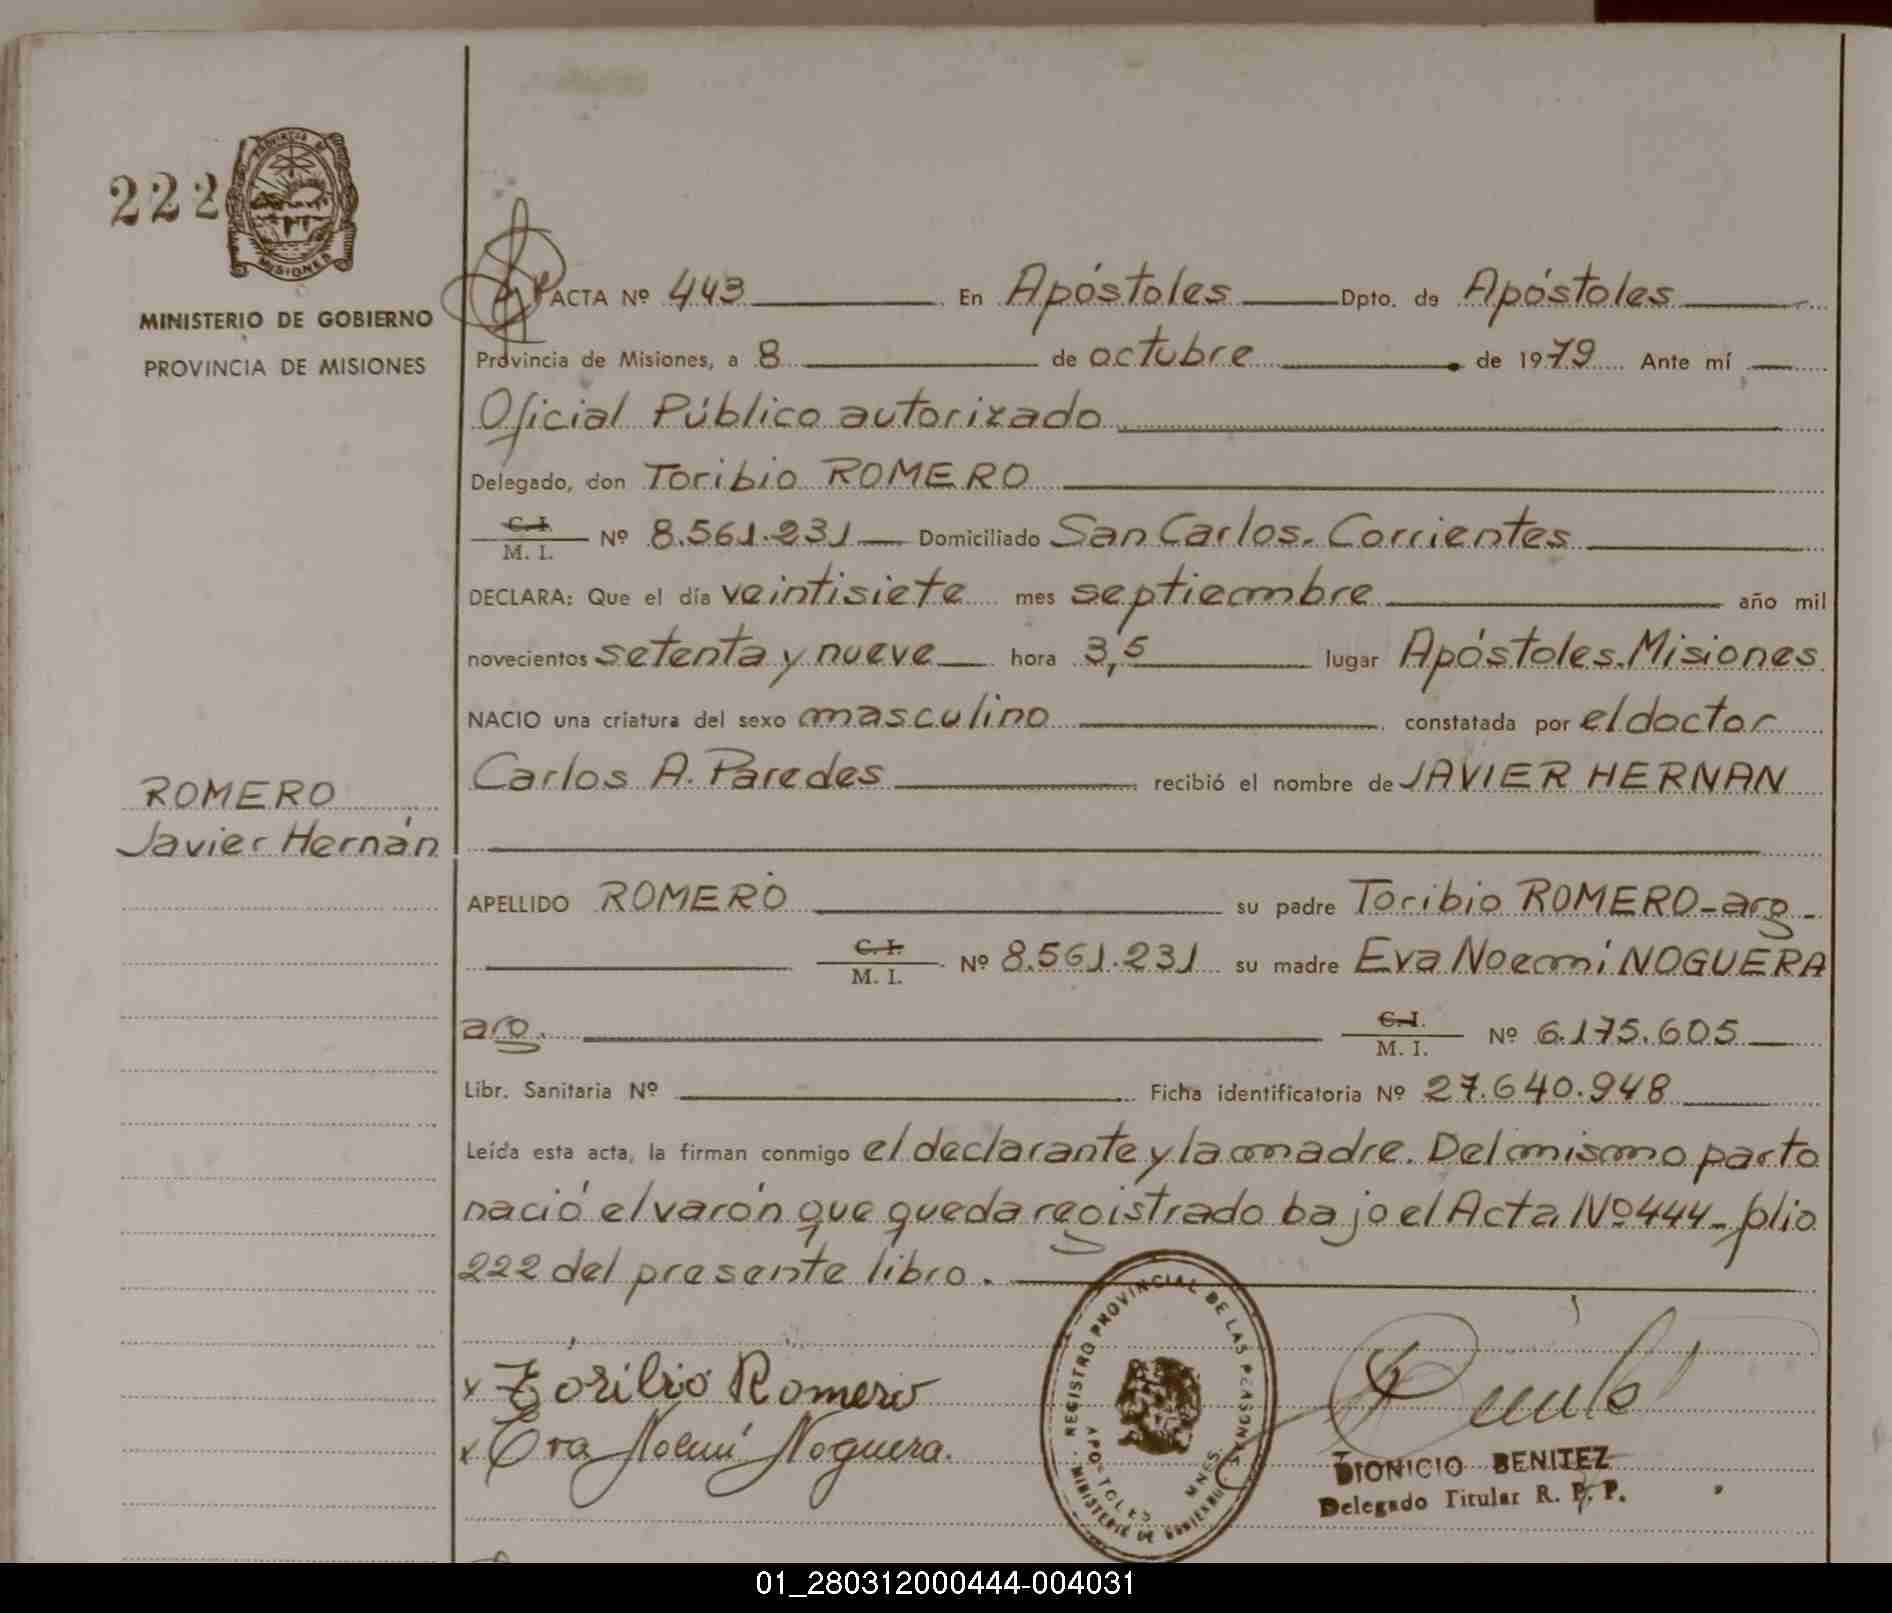 222
PROVINCIA DE
MISIONES
MINISTERIO DE GOBIERNO
PROVINCIA DE MISIONES
ACTA Nº 443 En Apóstoles Dpto. de Apóstoles
Provincia de Misiones, a 8 de octubre de 1979 Ante mí
Oficial Público autorizado
Delegado, don Toribio ROMERO
C. I.
M. I. Nº 8.561.231 Domiciliado San Carlos. Corrientes
DECLARA: Que el día veintisiete mes septiembre año mil
novecientos setenta y nueve hora 3,5 lugar Apóstoles. Misiones
NACIO una criatura del sexo masculino constatada por el doctor
Carlos A. Paredes recibió el nombre de JAVIER HERNAN
ROMERO
Javier Hernán
APELLIDO ROMERO su padre Toribio ROMERO-arg-
C. I.
M. I. Nº 8.561.231 su madre Eva Noemí NOGUERA
arg. C. I.
M. I. Nº 6.175.605
Libr. Sanitaria Nº Ficha identificatoria Nº 27.640.948
Leída esta acta, la firman conmigo el declarante y la madre. Del mismo parto
nació el varón que queda registrado bajo el Acta Nº 444- folio
222 del presente libro.
x Toribio Romero
x Eva Noemí Noguera.
REGISTRO PROVINCIAL DE LAS PERSONAS
APOSTOLES MNES.
MINISTERIO DE GOBIERNO
DIONICIO BENITEZ
Delegado Titular R. P. P.
01_280312000444-004031